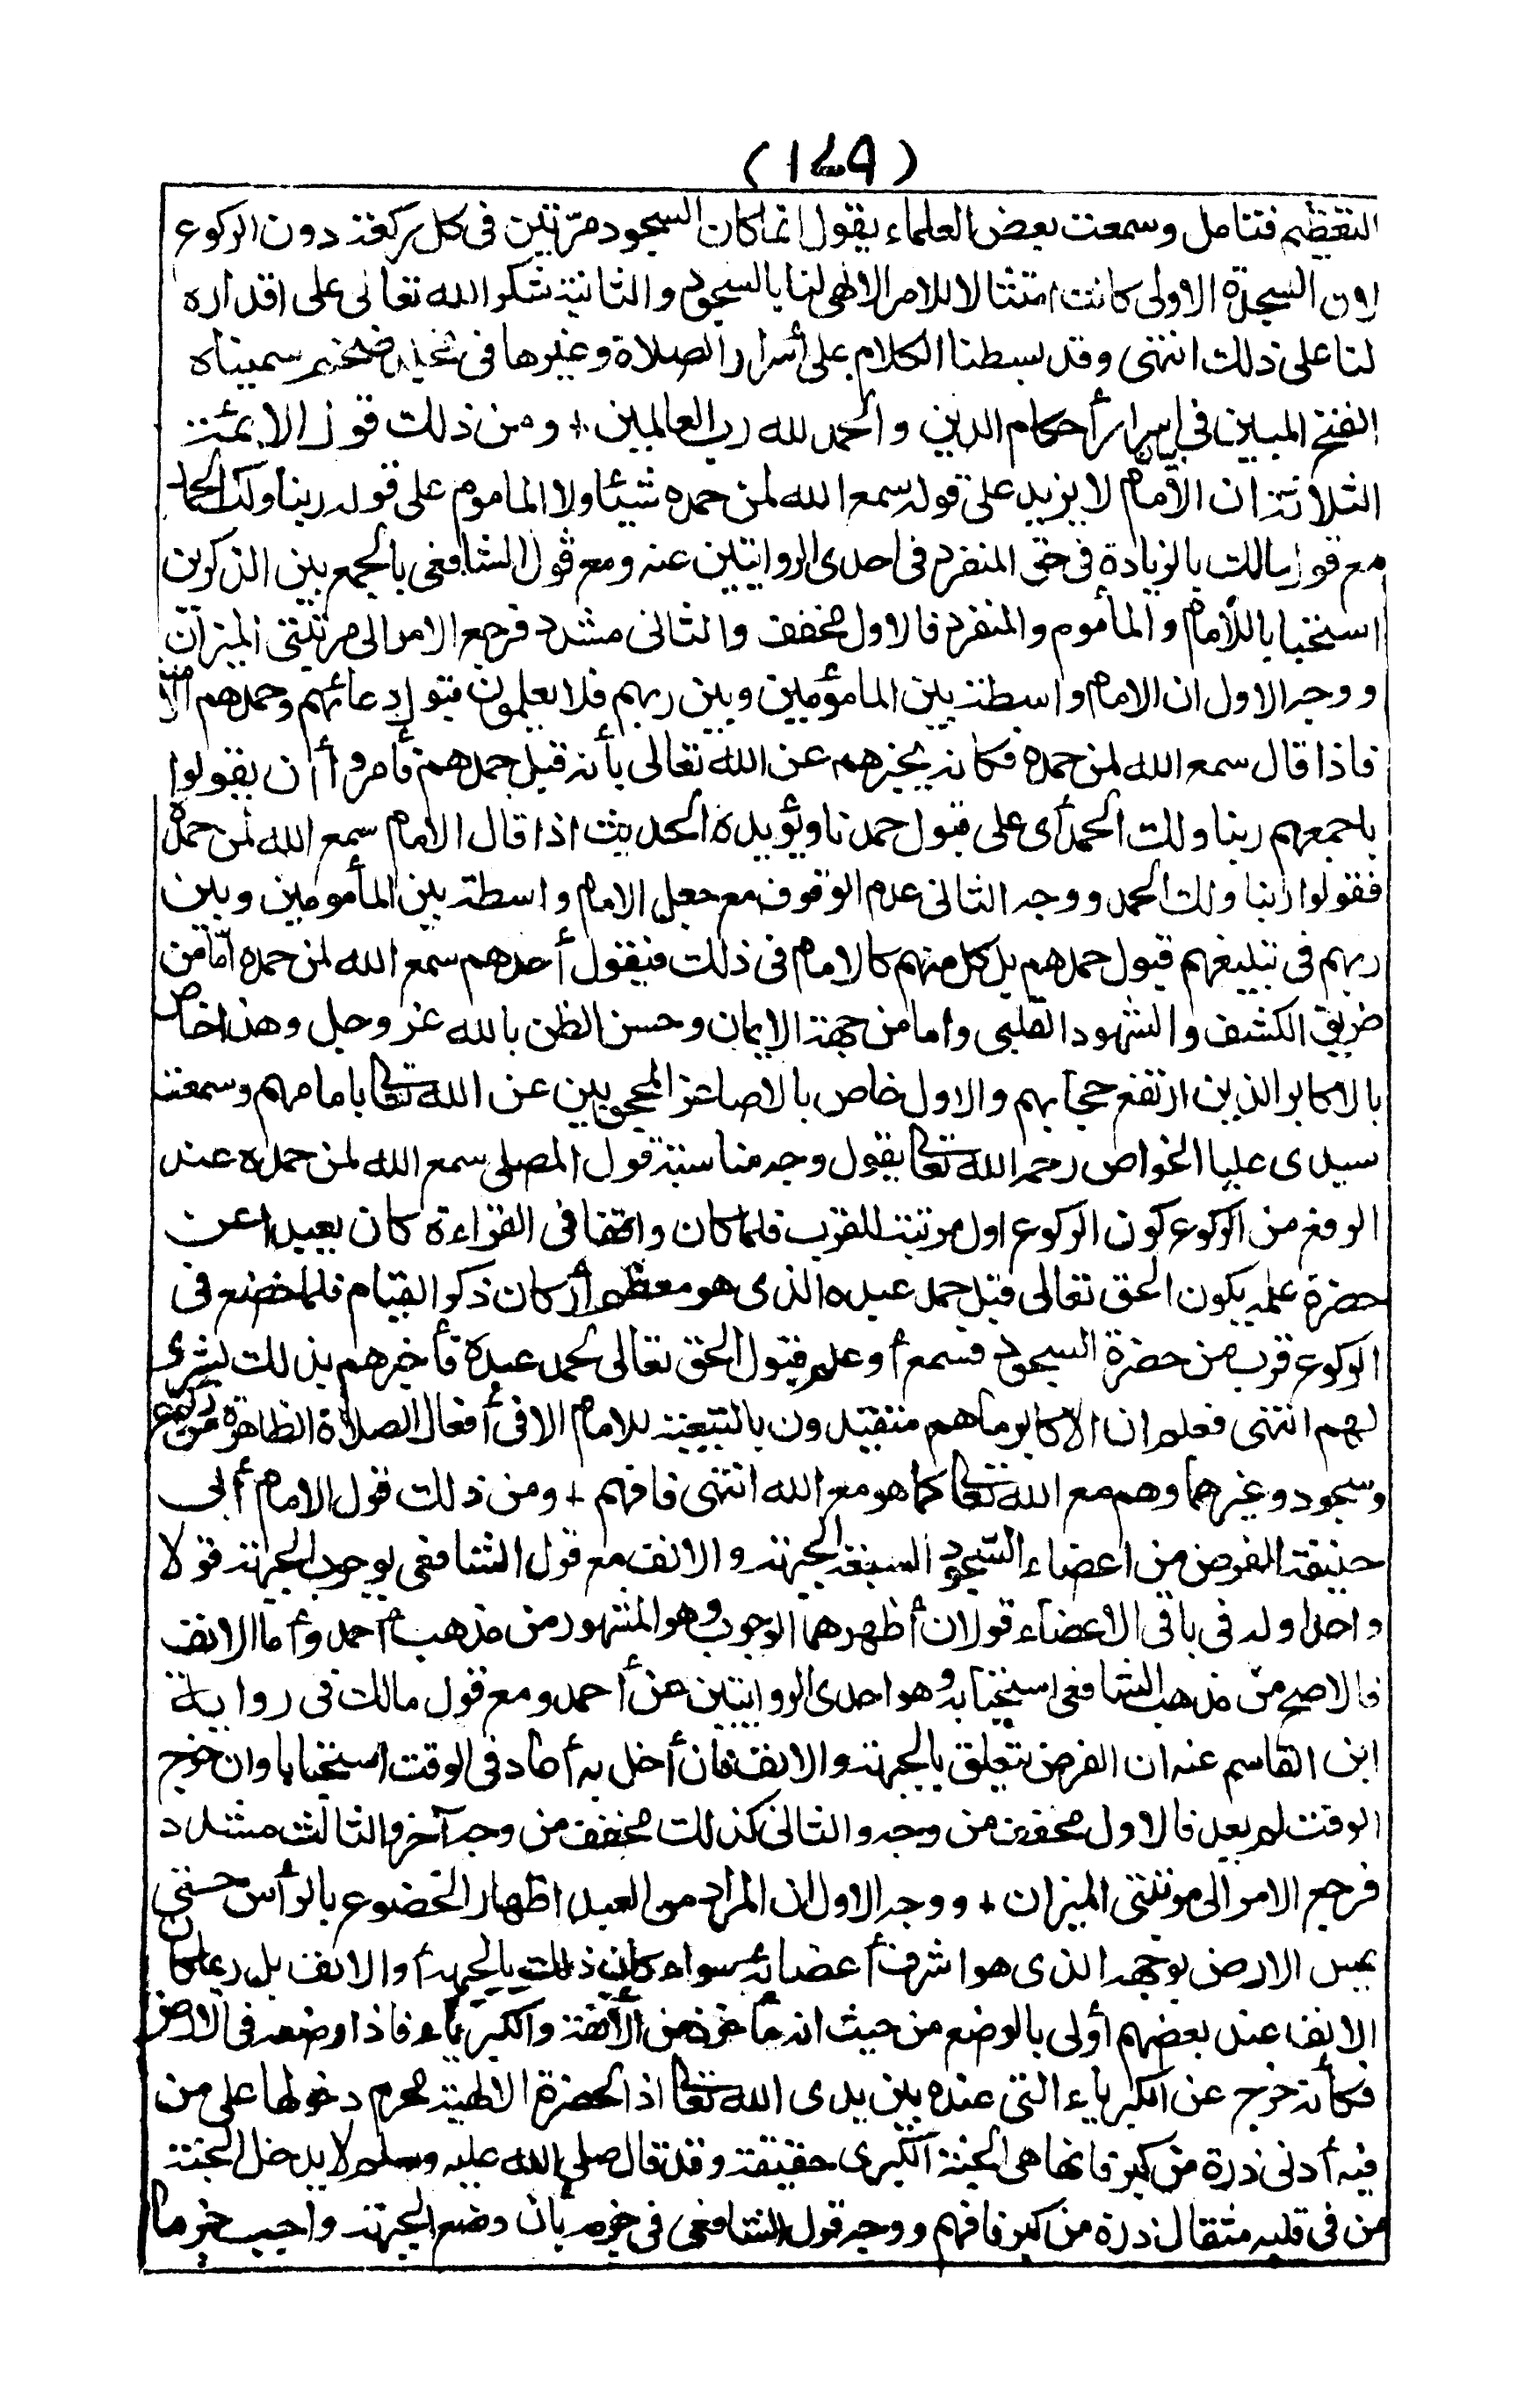 (١٤٩)
التعظيم فتامل وسمعت بعض العلماء يقول انما كان السجود مرّتين فى كل ركعة دون الركوع
لان السجدة الاولى كانت امتثالا للامر الالهى لنا بالسجود والثانية شكرا لله تعالى على اقداره
لنا على ذلك انتهى وقد بسطنا الكلام على أسرار الصلاة وغيرها فى مجلد ضخم سميناه
الفتح المبين فى بيان اسرار أحكام الدين والحمد لله رب العالمين + ومن ذلك قول الائمة
الثلاثة ان الامام لا يزيد على قوله سمع الله لمن حمده شيئا ولا الماموم على قوله ربنا ولك الحمد
مع قول مالك بالزيادة فى حق المنفرد فى احدى الروايتين عنه ومع قول الشافعى بالجمع بين الذكرين
استحبابا للامام والمأموم والمنفرد فالاول مخفف والثانى مشدد فرجع الامر الى مرتبتى الميزان
ووجه الاول ان الامام واسطة بين المأمومين وبين ربهم فلا يعلمون قبول دعائهم وحمدهم الا منه
فاذا قال سمع الله لمن حمده فكانه يخبرهم عن الله تعالى بأنه قبل حمدهم فأمروا أن يقولوا
باجمعهم ربنا ولك الحمد أى على قبول حمدنا ويؤيده الحديث اذا قال الامام سمع الله لمن حمده
فقولوا ربنا ولك الحمد ووجه الثانى عدم الوقوف مع جعل الامام واسطة بين المأمومين وبين
ربهم فى تبليغهم قبول حمدهم بل كل منهم كالامام فى ذلك فيقول أحدهم سمع الله لمن حمده امّا من
طريق الكشف والشهود القلبى واما من جهة الايمان وحسن الظن بالله عز وجل وهذا خاص
بالاكابر الذين ارتفع حجابهم والاول خاص بالاصاغر المحجوبين عن الله تعا بامامهم وسمعت
سيدى عليا الخواص رحمه الله تعا يقول وجه مناسبة قول المصلى سمع الله لمن حمده عند
الرفع من الركوع كون الركوع اول مرتبة للقرب فلما كان واقفا فى القراءة كان بعيدا عن
حضرة علمه بكون الحق تعالى قبل حمد عبده الذى هو معظم أركان ذكر القيام فلما خضع فى
الركوع قرب من حضرة السجود فسمع أو علم قبول الحق تعالى لحمد عبده فأخبرهم بذلك بشرى
لهم انتهى فعلم ان الاكابر ما هم متقيدون بالتبعية للامام الا فى أفعال الصلاة الظاهرة من ركوع
وسجود وغيرهما وهم مع الله تعا كما هو مع الله انتهى فافهم + ومن ذلك قول الامام أبى
حنيفة الفرض من اعضاء السجود السبعة الجبهة والانف مع قول الشافعى بوجوب الجبهة قولا
واحدا وله فى باقى الاعضاء قولان أظهرهما الوجوب وهو المشهور من مذهب أحمد وأما الانف
فالاصح من مذهب الشافعى استحبابه وهو احدى الروايتين عن أحمد ومع قول مالك فى رواية
ابن القاسم عنه ان الفرض يتعلق بالجبهة والانف فان أخل به أعاد فى الوقت استحبابا وان خرج
الوقت لم يعد فالاول مخفف من وجه والثانى كذلك مخفف من وجه آخر والثالث مشدد
فرجع الامر الى مرتبتى الميزان + ووجه الاول ان المراد من العبد اظهار الخضوع بالرأس حتى
يمس الارض بوجهه الذى هو اشرف أعضائه سواء كان ذلك بالجبهة أو الانف بل ربما كان
الانف عند بعضهم أولى بالوضع من حيث انه مأخوذ من الأنفة والكبرياء فاذا وضعه فى الارض
فكأنه خرج عن الكبرياء التى عنده بين يدى الله تعا اذ الحضرة الالهية محرم دخولها على من
فيه أدنى ذرة من كبر فانها هى الجنة الكبرى حقيقة وقد قال صلى الله عليه وسلم لا يدخل الجنة
من فى قلبه مثقال ذرة من كبر فافهم ووجه قول الشافعى فى جزمه بأن وضع الجبهة واجب جزما